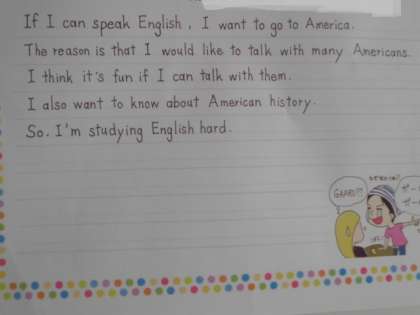 If I can speak English, I want to go to America.
The reason is that I would like to talk with many Americans.
I think it's fun if I can talk with them.
I also want to know about American history.
So, I'm studying English hard.